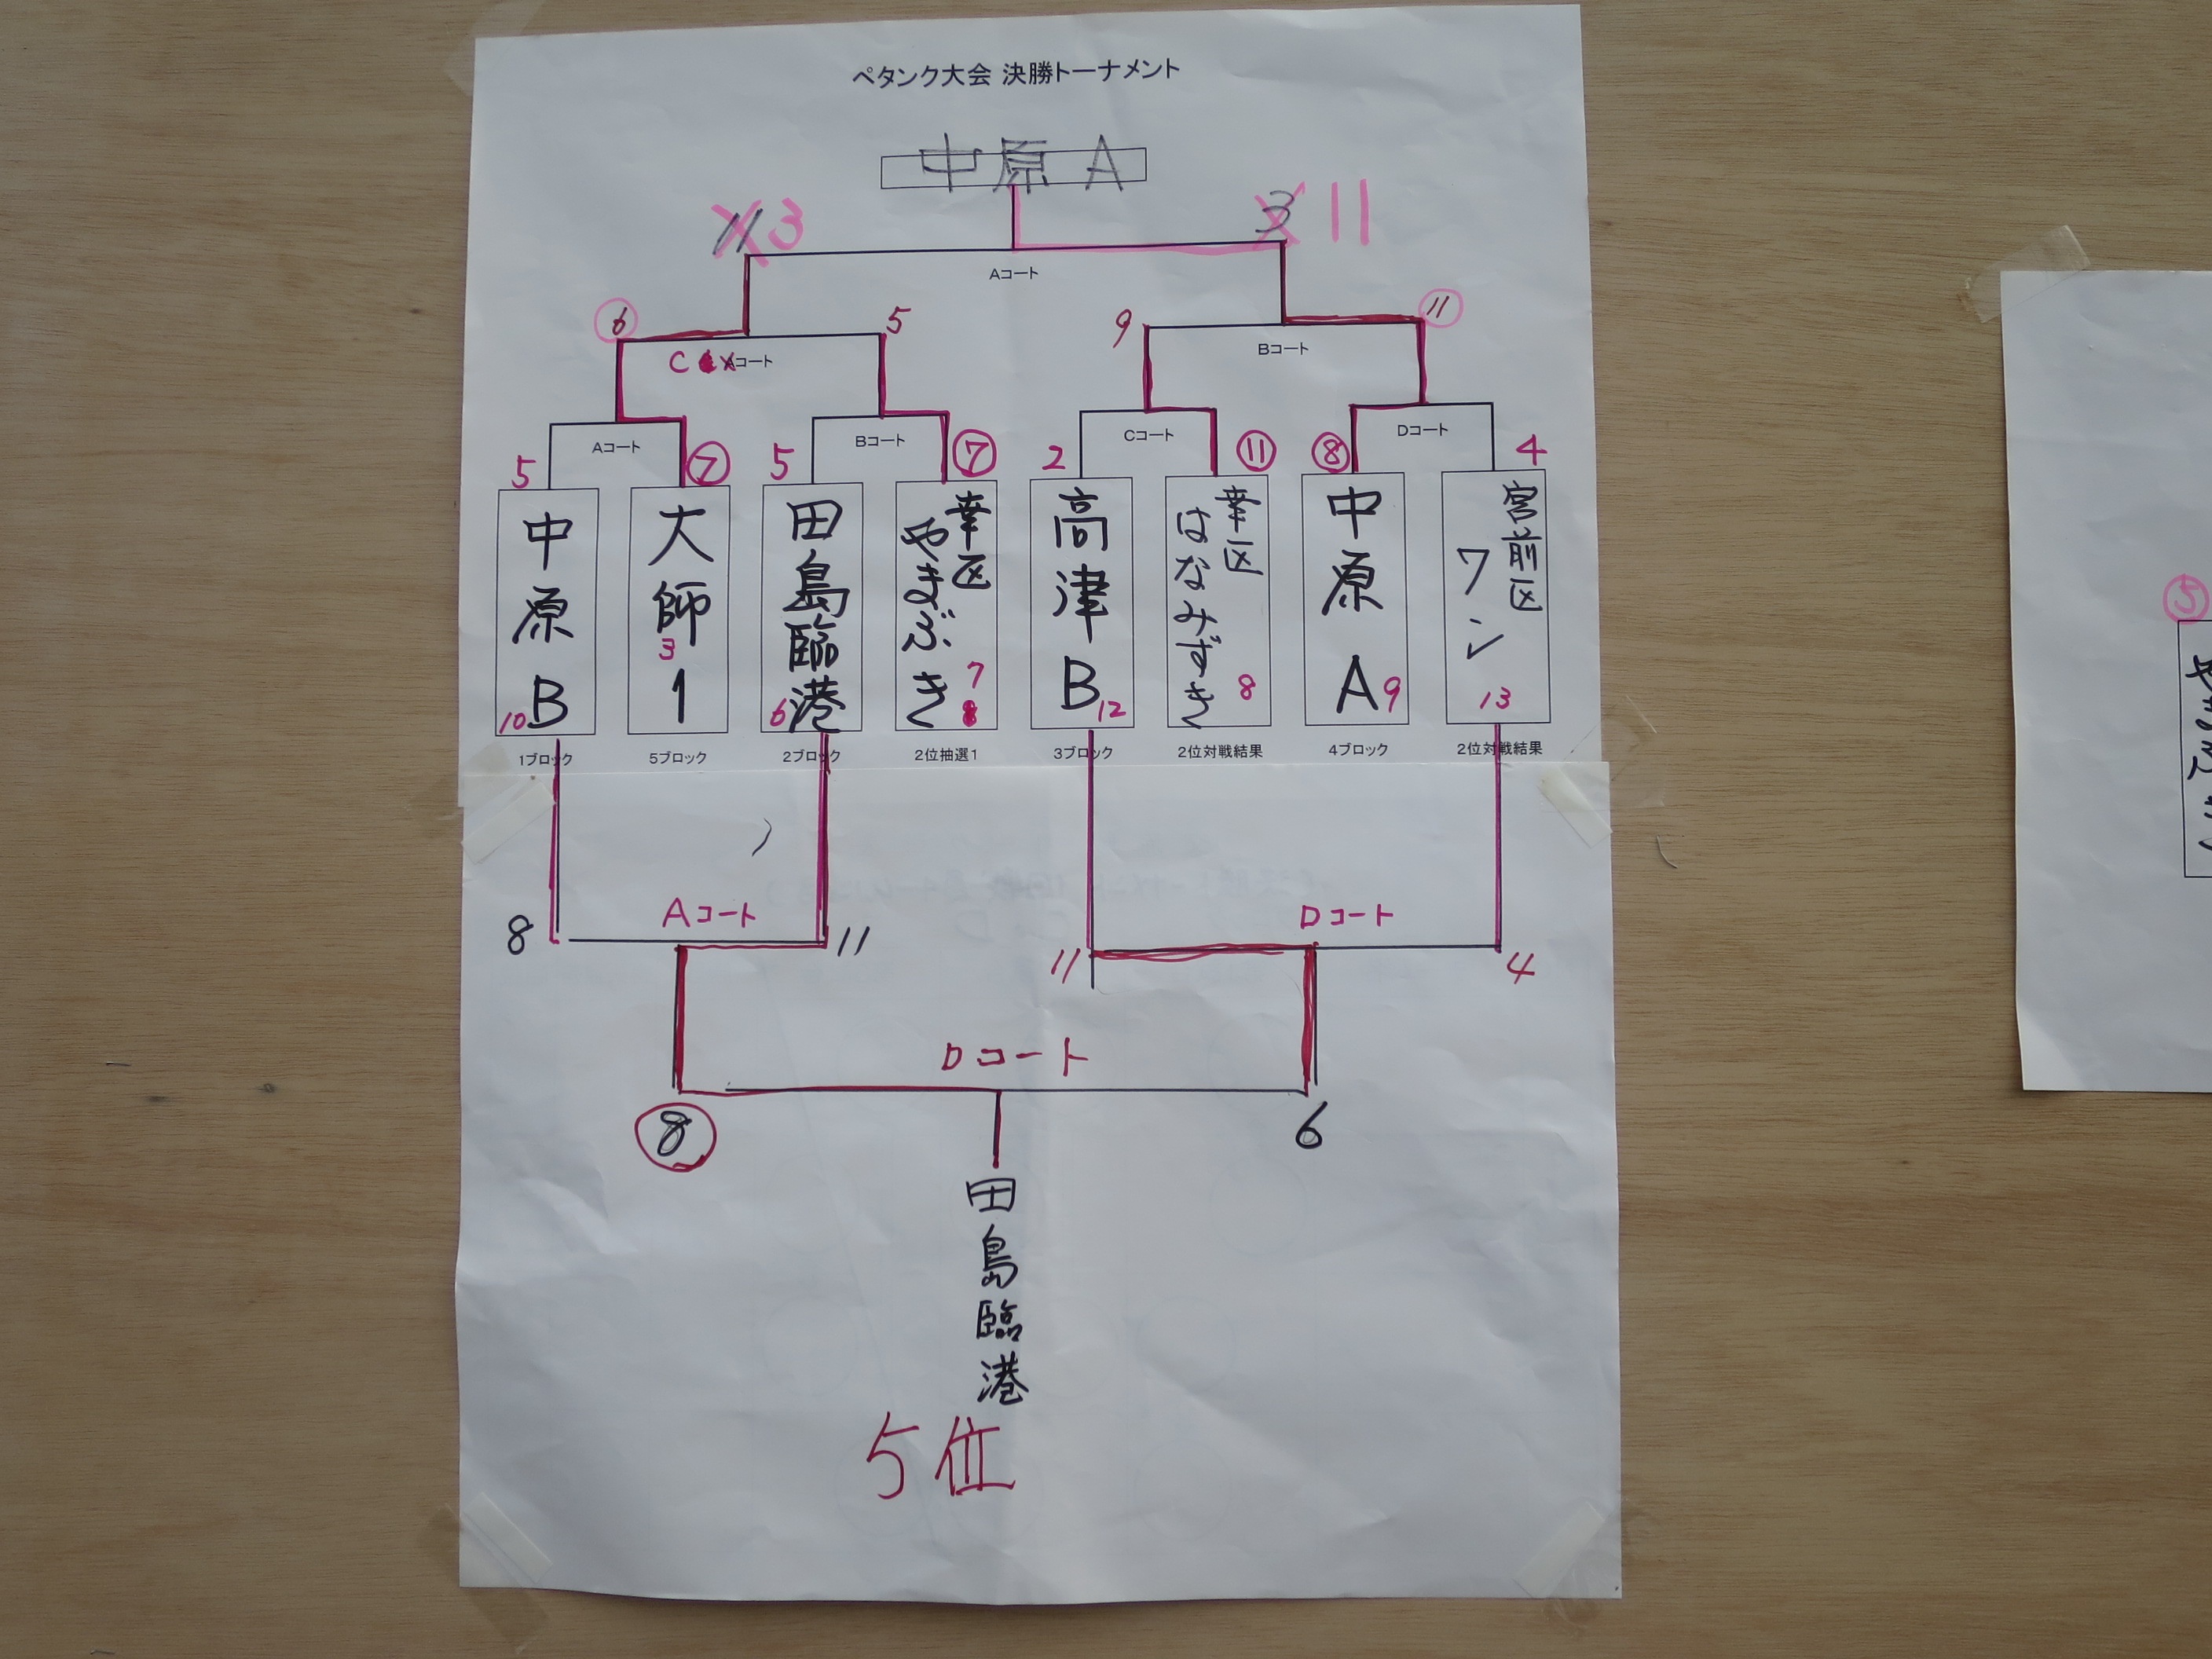 ペタンク大会 決勝トーナメント
中原 A
11 3
3 11
Aコート
6
5
9
11
C Aコート
Bコート
Aコート
Bコート
Cコート
Dコート
5
⑦
5
⑦
2
⑪
⑧
4
中原B
10
大師1
3
田島臨港
6
幸区
やまぶき
7
8
高津B
12
幸区
はなみずき
8
中原A
9
宮前区
ワン
13
1ブロック
5ブロック
2ブロック
2位抽選1
3ブロック
2位対戦結果
4ブロック
2位対戦結果
Aコート
Dコート
8
11
11
4
Dコート
⑧
6
田島臨港
5位
⑤